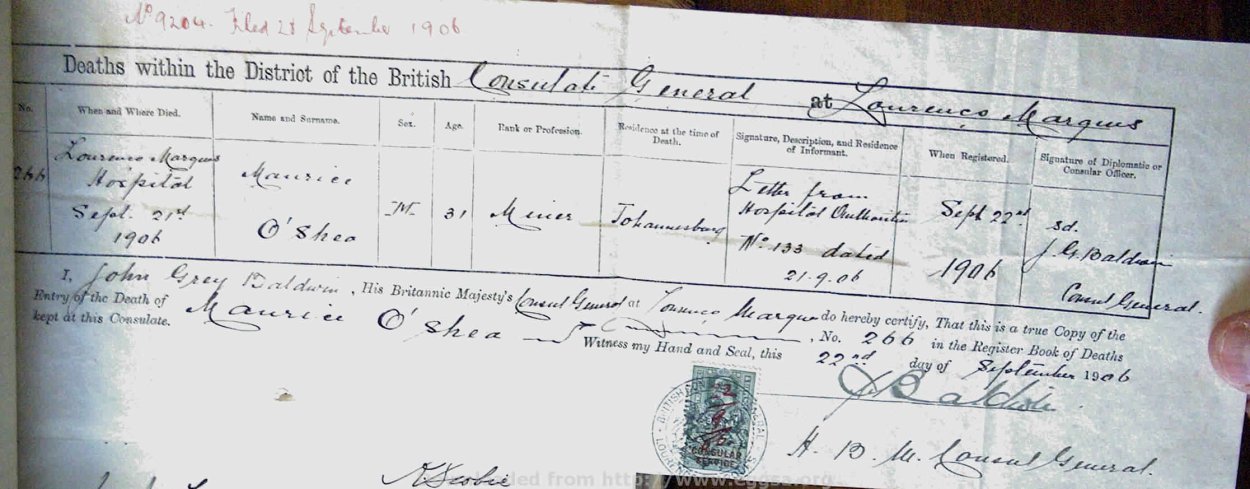 No 9204. Filed 28 September 1906
Deaths within the District of the British Consulate General at Lourenco Marques
No. When and Where Died. Name and Surname. Sex. Age. Rank or Profession. Residence at the time of Death. Signature, Description, and Residence of Informant. When Registered. Signature of Diplomatic or Consular Officer.
266
Lourenco Marques
Hospital
Sept. 21st
1906
Maurice
O'Shea
M
31
Miner
Johannesburg
Letter from
Hospital Authorities
No 133 dated
21-9-06
Sept 22nd
1906
sd.
J. G. Baldwin
Consul General.
I, John Grey Baldwin, His Britannic Majesty's Consul General at Lourenco Marques do hereby certify, That this is a true Copy of the
Entry of the Death of Maurice O'Shea, No. 266 in the Register Book of Deaths
kept at this Consulate.
Witness my Hand and Seal, this 22nd day of September 1906
J G Baldwin
H. B. M. Consul General.
CONSULAR
SERVICE
ded from http://www.eggsa.org